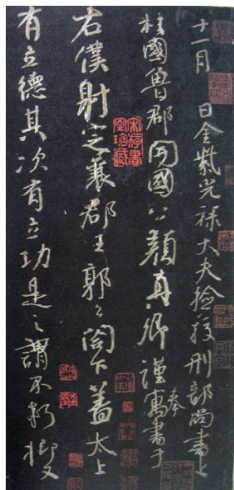 十一月 日金紫光禄大夫检校刑部尚書上
柱國魯郡開國公顔真卿謹奉寓書于
右僕射定襄郡王郭公閣下蓋太上
有立德其次有立功是之謂不朽抑又